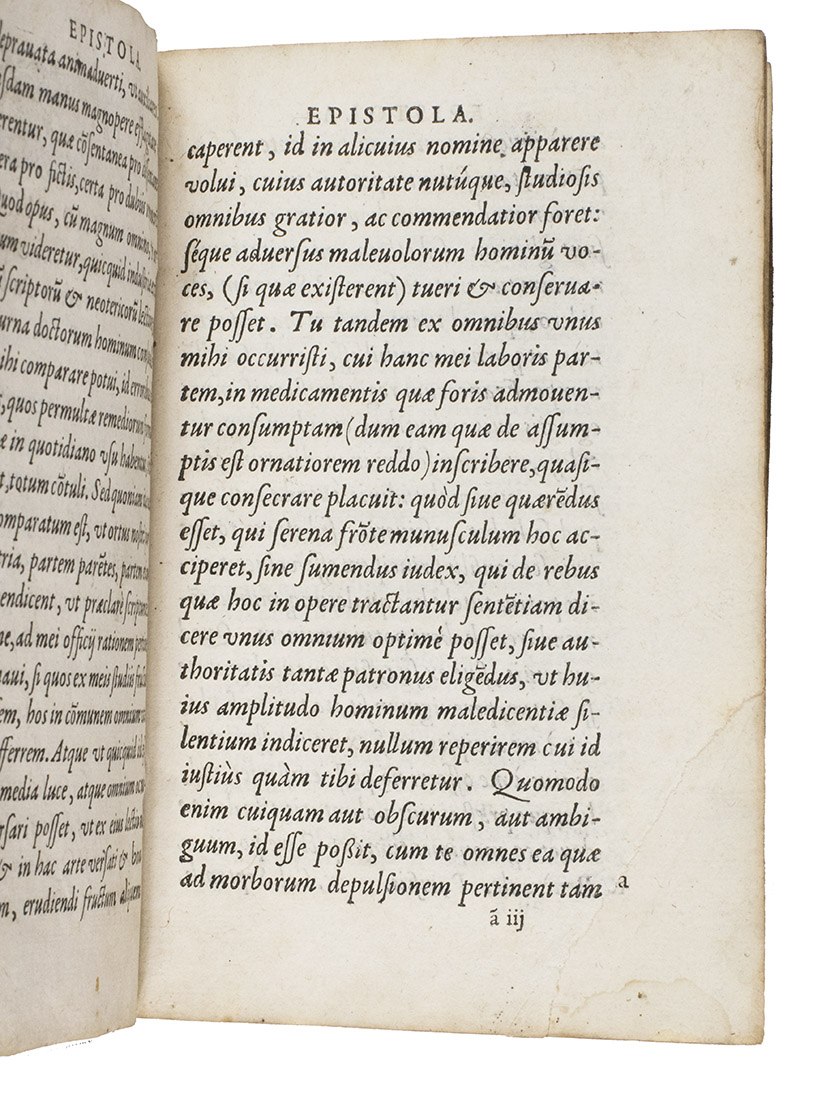 EPISTOLA
deprauata animaduerti, vt
manus magnopere
quæ cõsentanea pro
pro fictis, certa pro dubijs
opus, cũ magnum
videretur, quicquid
scriptorũ & neotericorũ
doctorum hominum
comparare potui, id
quos permultæ remediorum
in quotidiano vsu
totum cõtuli. Sed quoniam
est, vt ortus
partem parẽtes, partem
vt præclarè
ad mei officij rationem
si quos ex meis studiis
hos in cõmunem omnium
Atque vt quicquid
media luce, atque omnium
posset, vt ex eius
& in hac arte versati &
erudiendi fructum aliquem
EPISTOLA.
caperent, id in alicuius nomine apparere
volui, cuius autoritate nutúque, ſtudioſis
omnibus gratior, ac commendatior foret:
ſéque aduerſus maleuolorum hominũ vo-
ces, (ſi quæ exiſterent) tueri & conſerua-
re poſſet. Tu tandem ex omnibus vnus
mihi occurriſti, cui hanc mei laboris par-
tem, in medicamentis quæ foris admouen-
tur conſumptam (dum eam quæ de aſſum-
ptis eſt ornatiorem reddo) inſcribere, quaſi-
que conſecrare placuit: quòd ſiue quærẽdus
eſſet, qui ſerena frõte munuſculum hoc ac-
ciperet, ſine ſumendus iudex, qui de rebus
quæ hoc in opere tractantur ſentẽtiam di-
cere vnus omnium optimè poſſet, ſiue au-
thoritatis tantæ patronus eligẽdus, vt hu-
ius amplitudo hominum maledicentiæ ſi-
lentium indiceret, nullum reperirem cui id
iuſtiùs quàm tibi deferretur. Quomodo
enim cuiquam aut obſcurum, aut ambi-
guum, id eſſe poßit, cum te omnes ea quæ
ad morborum depulſionem pertinent tam a
ã iij